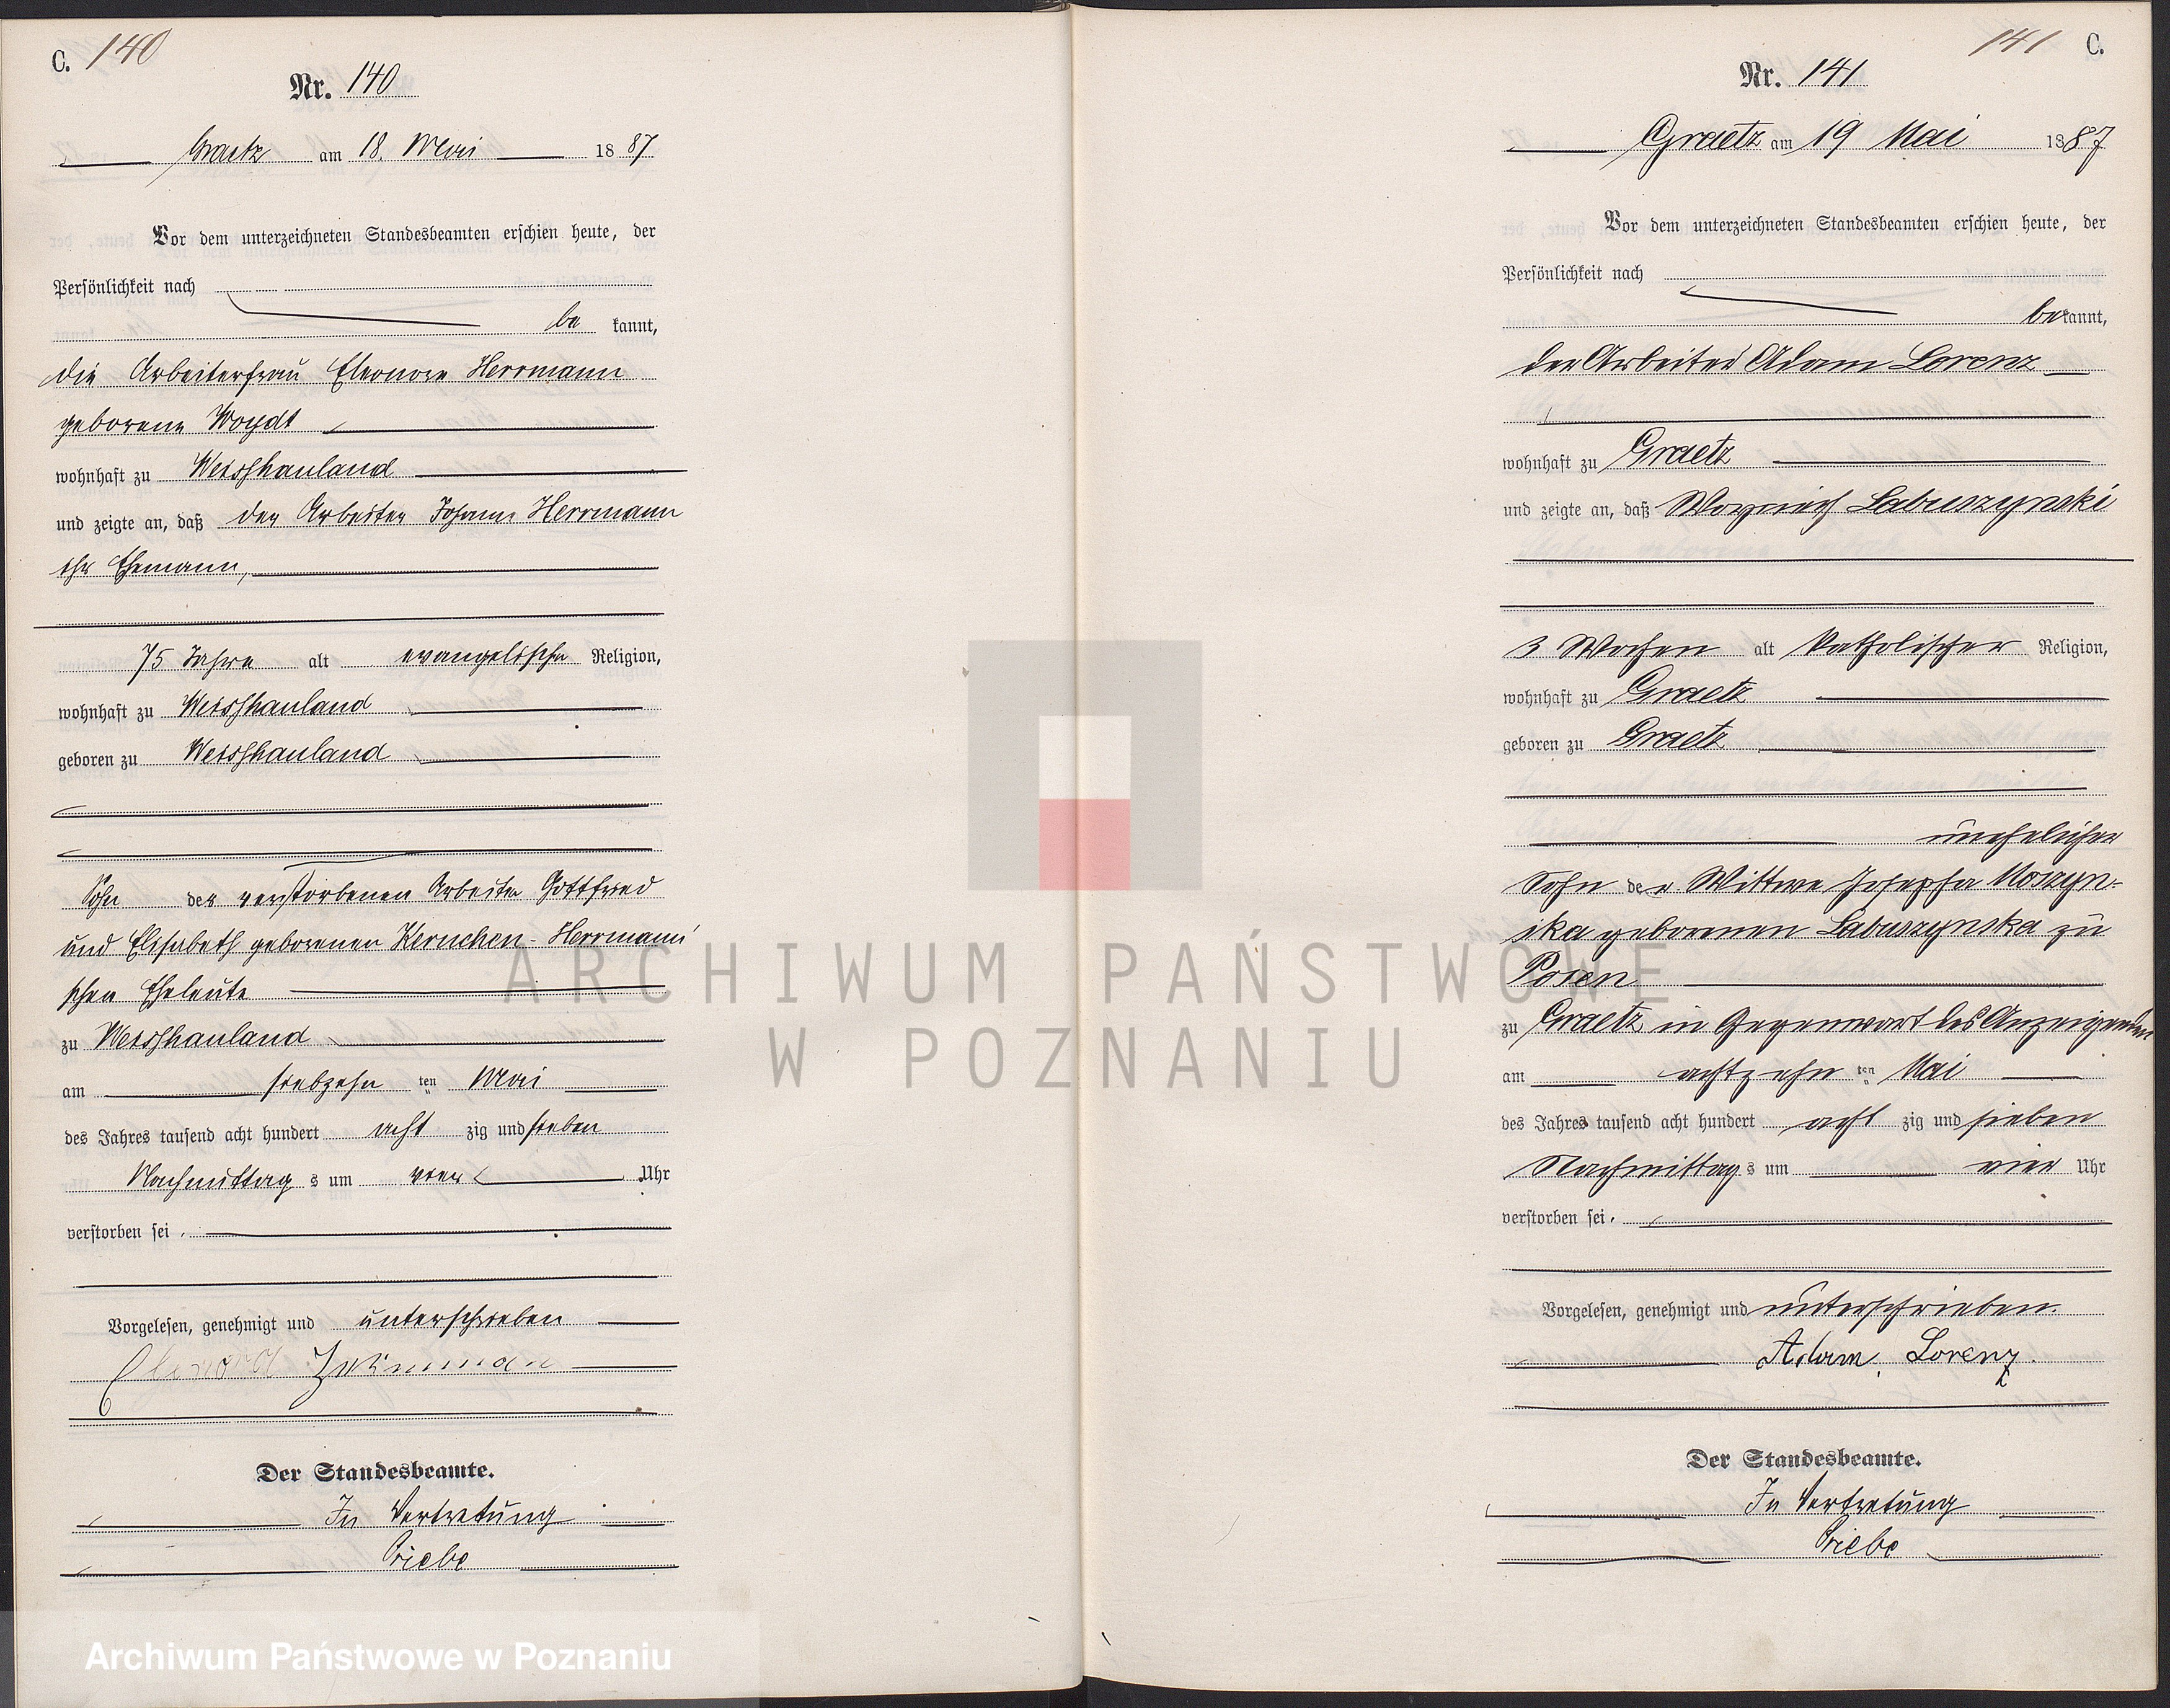 C. 140
Nr. 140
Graetz am 18. Mai 1887
Vor dem unterzeichneten Standesbeamten erschien heute, der
Persönlichkeit nach
be kannt,
die Arbeiterfrau Eleonore Herrmann
geborene Woydt
wohnhaft zu Weisshauland
und zeigte an, daß der Arbeiter Johann Herrmann
ihr Ehemann,
75 Jahre alt evangelische Religion,
wohnhaft zu Weisshauland
geboren zu Weisshauland
Sohn der verstorbenen Arbeiter Gottfried
und Elisabeth geborenen Kernchen-Herrmann'
schen Eheleute
zu Weisshauland
am siebzehn ten Mai
des Jahres tausend acht hundert acht zig und sieben
Nachmittag s um vier Uhr
verstorben sei.
Vorgelesen, genehmigt und unterschrieben
Der Standesbeamte.
In Vertretung
Priebe
141 C.
Nr. 141
Graetz am 19 Mai 1887
Vor dem unterzeichneten Standesbeamten erschien heute, der
Persönlichkeit nach
bekannt,
der Arbeiter Adam Lorenz
wohnhaft zu Graetz
und zeigte an, daß Woyciech Labuszynski
3 Wochen alt katholischer Religion,
wohnhaft zu Graetz
geboren zu Graetz
unehelicher
Sohn der Wittwe Josepha Moszyn-
ska geborenen Labuszynska zu
Posen
zu Graetz in Gegenwart des Anzeigenden
am achtzehn ten Mai
des Jahres tausend acht hundert acht zig und sieben
Nachmittag s um vier Uhr
verstorben sei.
Vorgelesen, genehmigt und unterschrieben
Adam Lorenz.
Der Standesbeamte.
In Vertretung
Priebe
ARCHIWUM PAŃSTWOWE
W POZNANIU
Archiwum Państwowe w Poznaniu